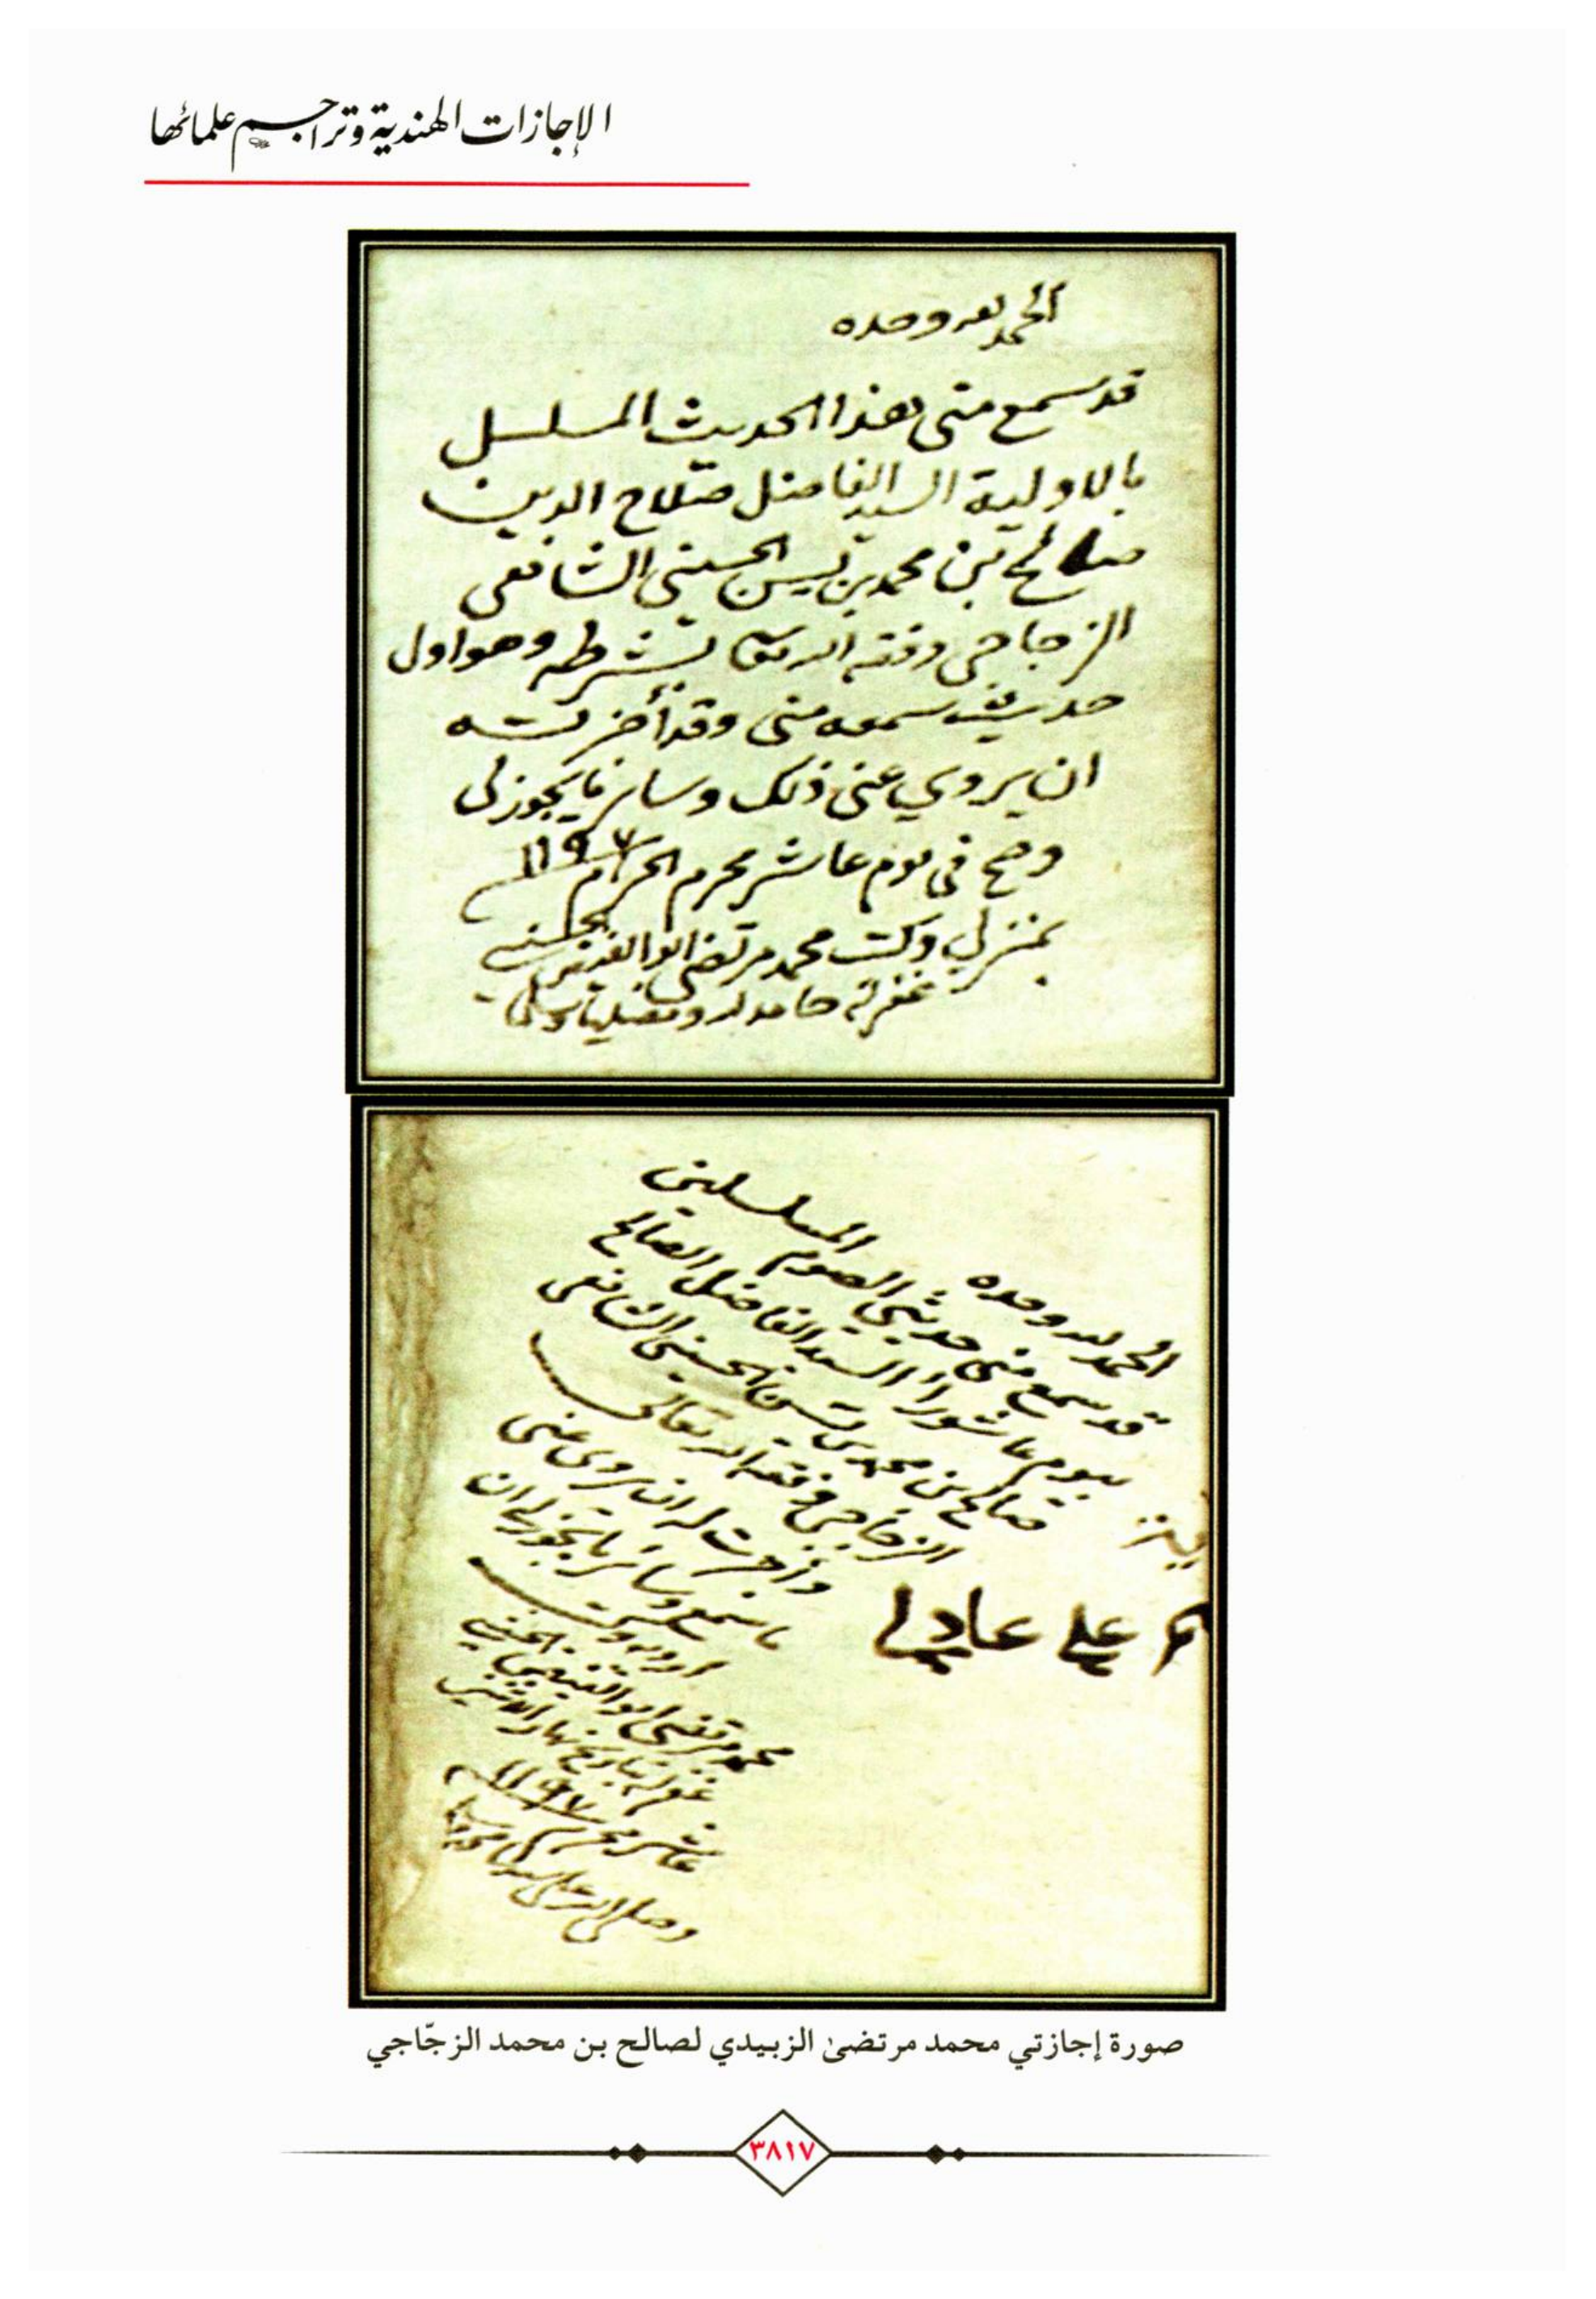 الإجازات الهندية وتراجم علمائها
الحمد لله وحده
قد سمع مني هذا الحديث المسلسل
بالاولية السيد الفاضل صلاح الدين
صالح بن محمد بن يسن الحسيني الشافعي
الزجاجي وفقه الله تعالى بشرطه وهو اول
حديث سمعه مني وقد أجزته
ان يروي عني ذلك وسائر ما يجوز لي
وصح في يوم عاشر محرم الحرام ١١٩٧
بمنزلي وكتب محمد مرتضى ابو الفيض الحسيني
غفر له حامدا لله ومصليا
الحمد لله وحده
قد سمع مني حديثي الصوم المسلسلين
بيوم عاشورا السيد الفاضل الصالح
صالح بن محمد بن يسن الحسيني الشافعي
الزجاجي وفقه الله تعالى
وأجزت له ان يروي عني
ما سمع وسائر ما يجوز لي ان
ارويه وكتب
محمد مرتضى ابو الفيض الحسيني
غفر له بتاريخ نهار الاثنين
عاشر محرم ١١٩٧
وصلى الله على سيدنا محمد
علي عادلي
صورة إجازتي محمد مرتضىٰ الزبيدي لصالح بن محمد الزجّاجي
٣٨١٧